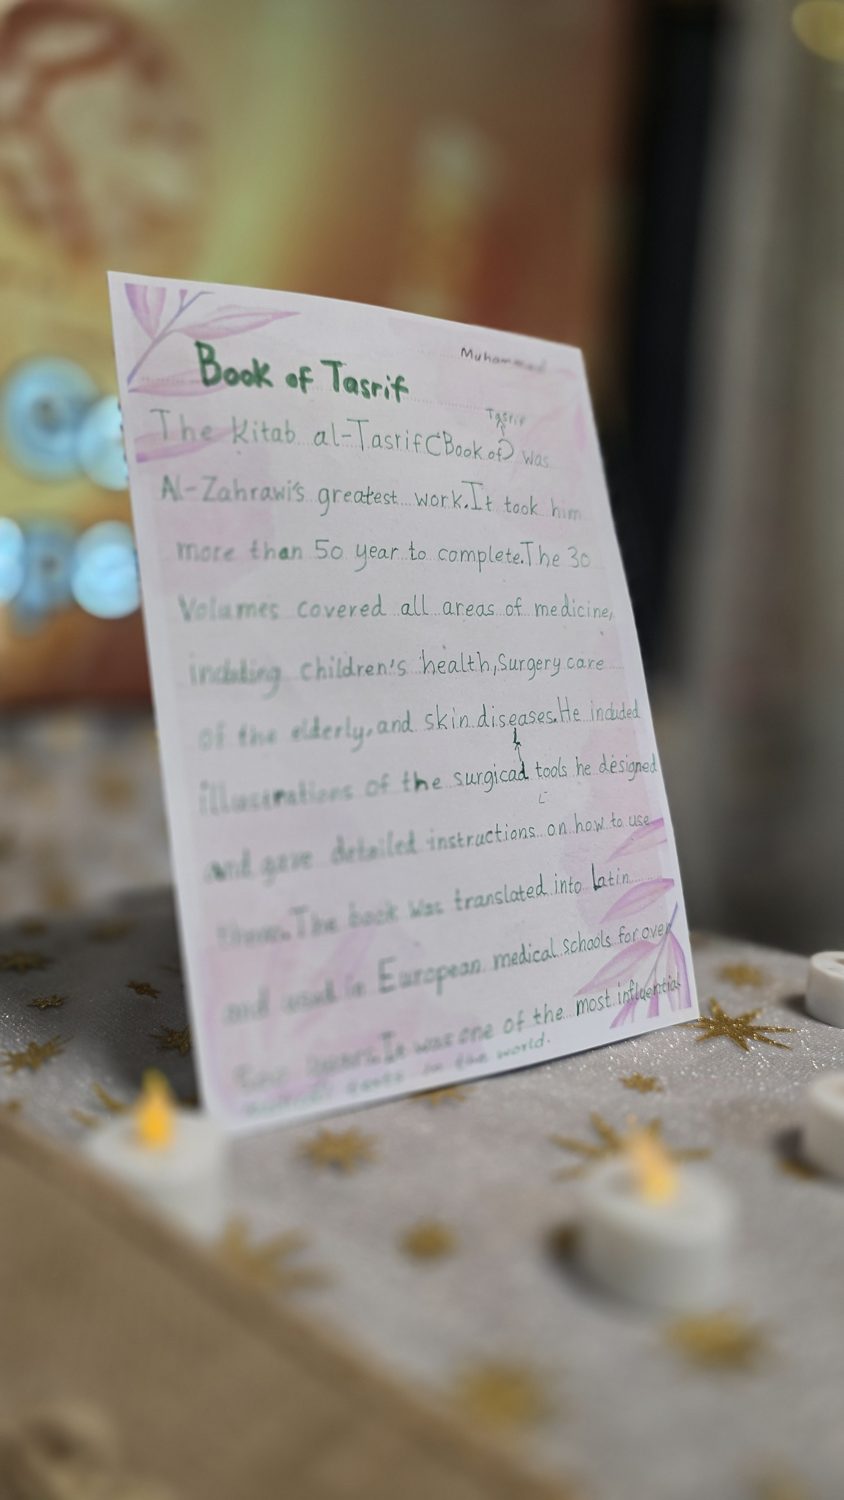 Muhammad
Book of Tasrif
Tasrif
The Kitab al-Tasrif(Book of) was
Al-Zahrawi's greatest work.It took him
more than 50 year to complete.The 30
Volumes covered all areas of medicine,
including children's health,Surgery care
of the elderly,and skin diseases.He included
illustrations of the surgicad tools he designed
L
and gave detailed instructions on how to use
them.The book was translated into Latin
and used in European medical schools for over
It was one of the most influential
in the world.